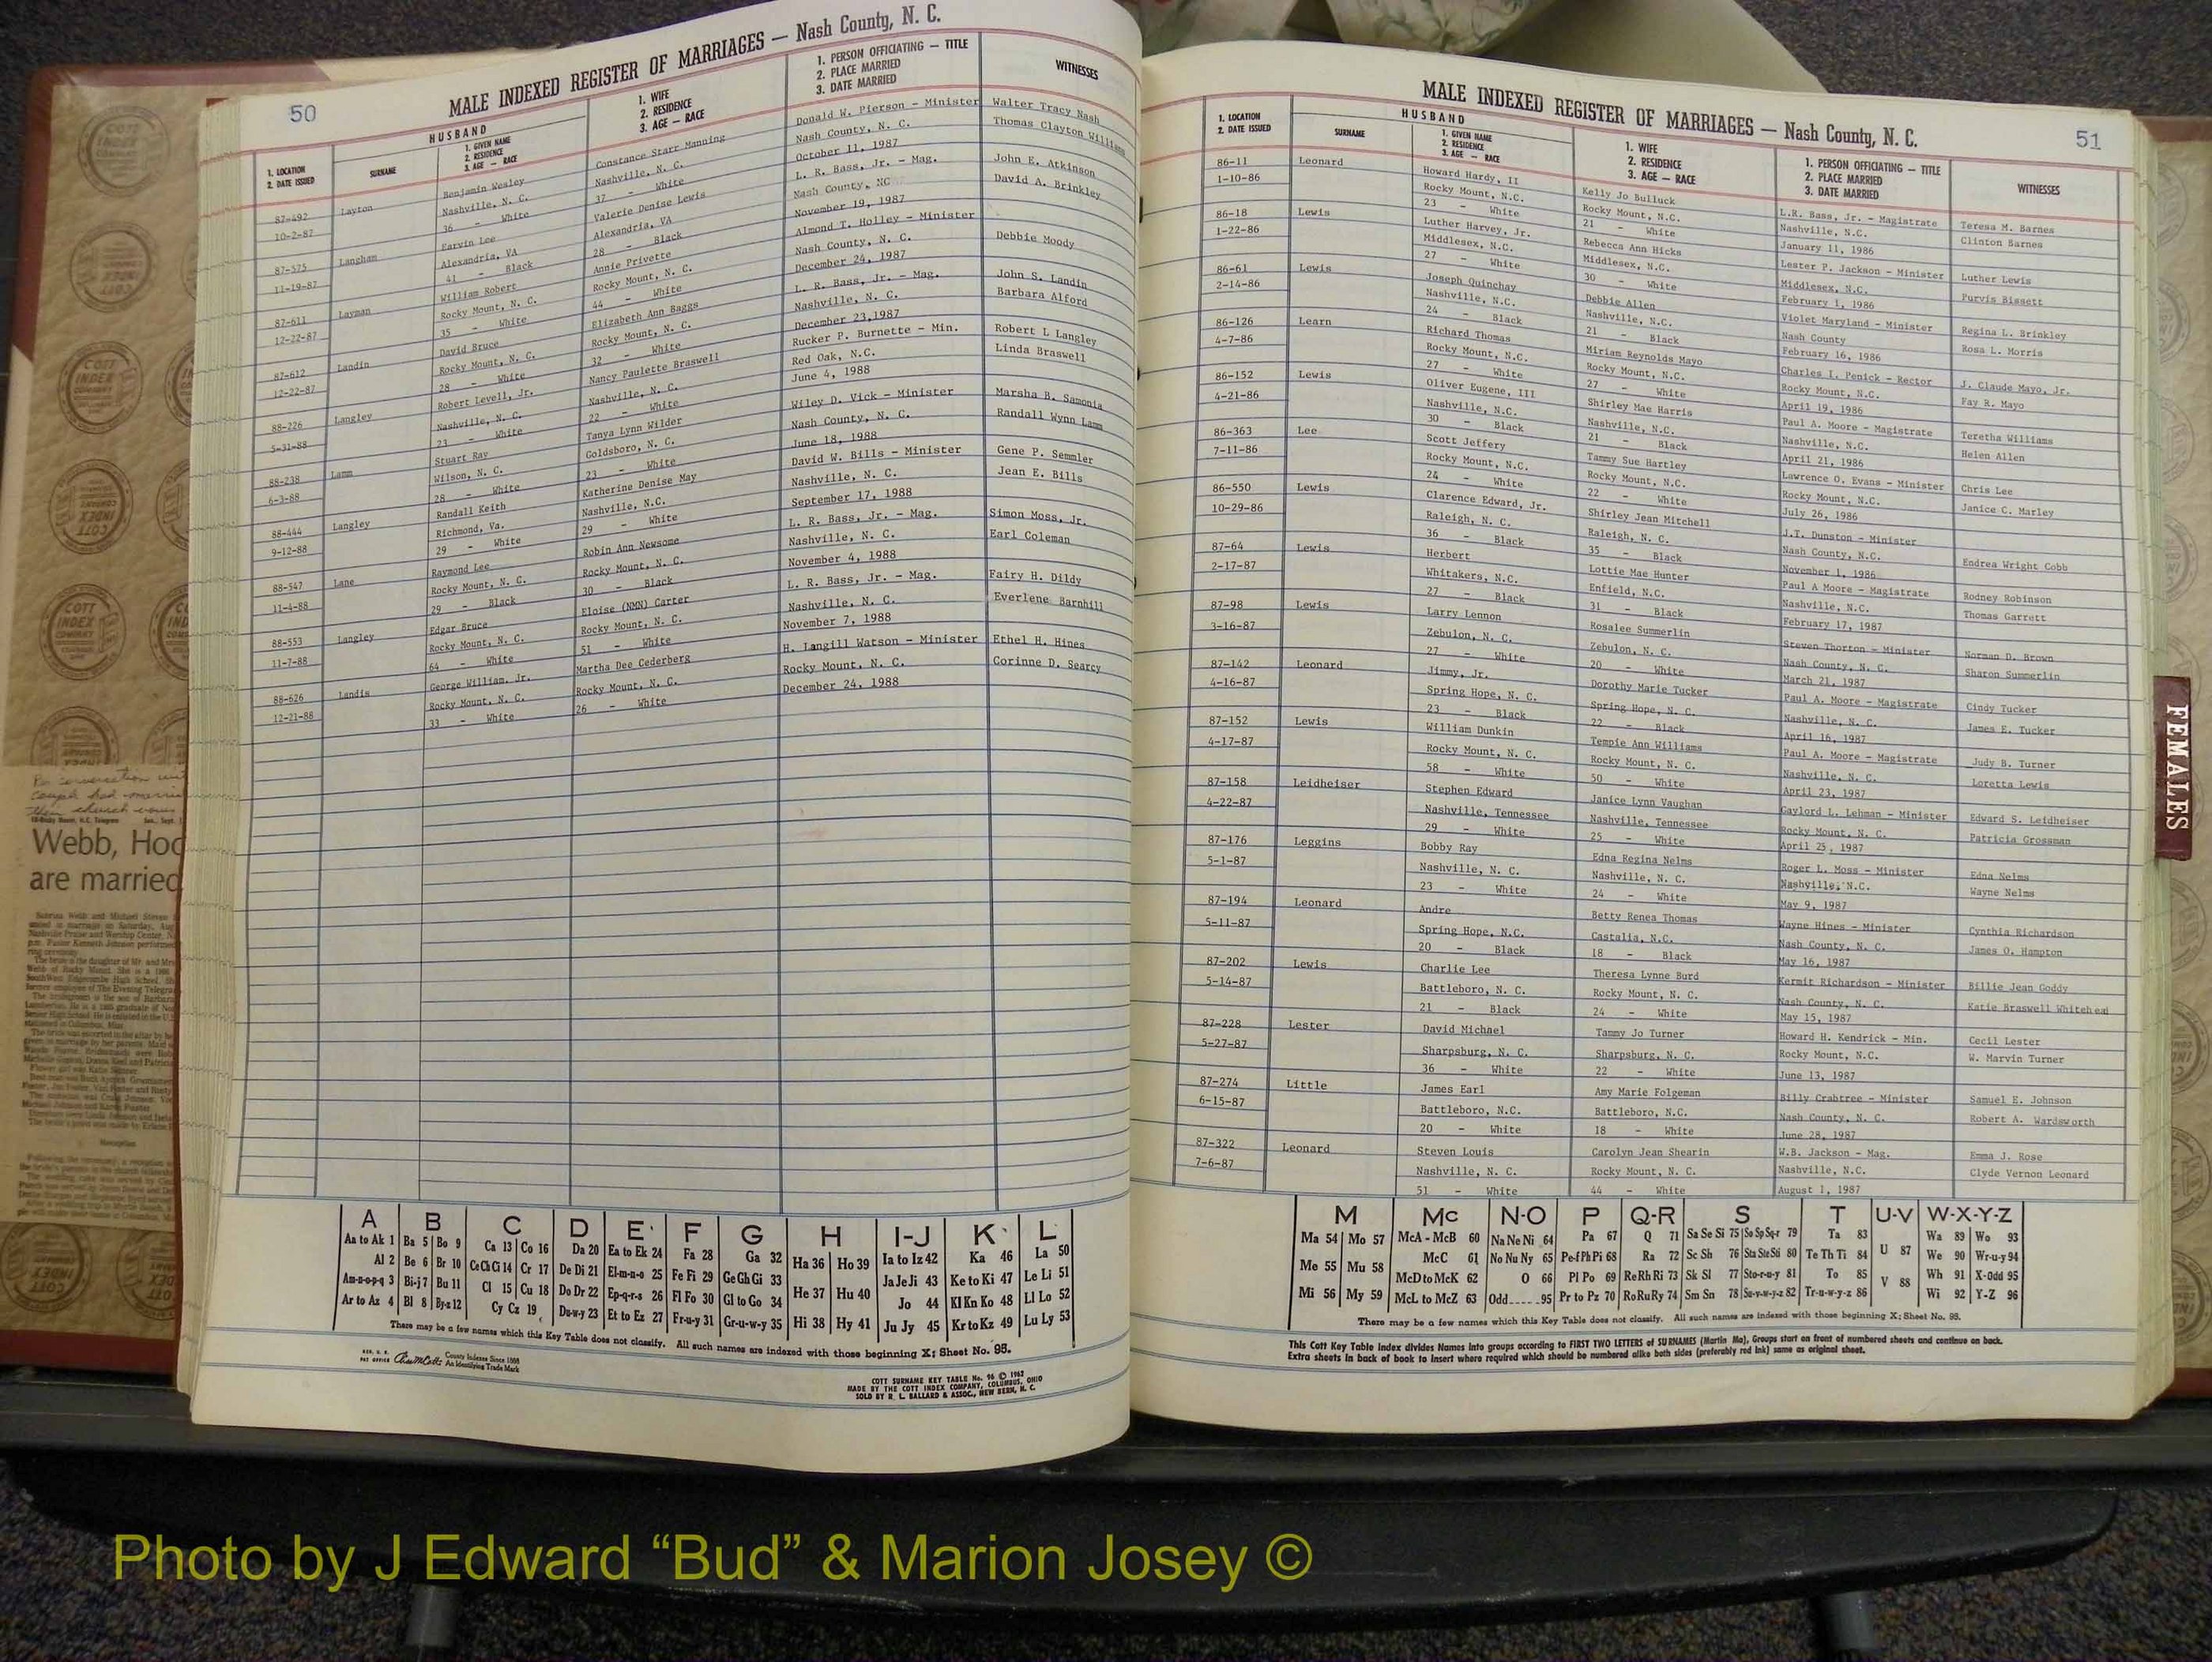 50
MALE INDEXED REGISTER OF MARRIAGES — Nash County, N. C.
1. LOCATION
2. DATE ISSUED
HUSBAND
SURNAME
1. GIVEN NAME
2. RESIDENCE
3. AGE — RACE
1. WIFE
2. RESIDENCE
3. AGE — RACE
1. PERSON OFFICIATING — TITLE
2. PLACE MARRIED
3. DATE MARRIED
WITNESSES
87-492 Layton Benjamin Wesley Constance Starr Manning Donald W. Pierson - Minister Walter Tracy Nash
10-2-87 Nashville, N. C. Nashville, N. C. Nash County, N. C. Thomas Clayton Williams
36 - White 37 - White October 11, 1987
87-575 Langham Earvin Lee Valerie Denise Lewis L. R. Bass, Jr. - Mag. John E. Atkinson
11-19-87 Alexandria, VA Alexandria, VA Nash County, NC David A. Brinkley
41 - Black 28 - Black November 19, 1987
87-611 Layman William Robert Annie Privette Almond T. Holley - Minister
12-22-87 Rocky Mount, N. C. Rocky Mount, N. C. Nash County, N. C. Debbie Moody
35 - White 44 - White December 24, 1987
87-612 Landin David Bruce Elizabeth Ann Baggs L. R. Bass, Jr. - Mag. John S. Landin
12-22-87 Rocky Mount, N. C. Rocky Mount, N. C. Nashville, N. C. Barbara Alford
28 - White 32 - White December 23,1987
88-226 Langley Robert Levell, Jr. Nancy Paulette Braswell Rucker P. Burnette - Min. Robert L Langley
5-31-88 Nashville, N. C. Nashville, N. C. Red Oak, N.C. Linda Braswell
23 - White 22 - White June 4, 1988
88-238 Lamm Stuart Ray Tanya Lynn Wilder Wiley D. Vick - Minister Marsha B. Samonia
6-3-88 Wilson, N. C. Goldsboro, N. C. Nash County, N. C. Randall Wynn Lamm
28 - White 23 - White June 18, 1988
88-444 Langley Randall Keith Katherine Denise May David W. Bills - Minister Gene P. Semmler
9-12-88 Richmond, Va. Nashville, N.C. Nashville, N. C. Jean E. Bills
29 - White 29 - White September 17, 1988
88-547 Lane Raymond Lee Robin Ann Newsome L. R. Bass, Jr. - Mag. Simon Moss, Jr.
11-4-88 Rocky Mount, N. C. Rocky Mount, N. C. Nashville, N. C. Earl Coleman
29 - Black 30 - Black November 4, 1988
88-553 Langley Edgar Bruce Eloise (NMN) Carter L. R. Bass, Jr. - Mag. Fairy H. Dildy
11-7-88 Rocky Mount, N. C. Rocky Mount, N. C. Nashville, N. C. Everlene Barnhill
64 - White 51 - White November 7, 1988
88-626 Landis George William, Jr. Martha Dee Cederberg H. Langill Watson - Minister Ethel H. Hines
12-21-88 Rocky Mount, N. C. Rocky Mount, N. C. Rocky Mount, N. C. Corinne D. Searcy
33 - White 26 - White December 24, 1988
A B C D E F G H I-J K L
Aa to Ak 1 Ba 5 Bo 9 Ca 13 Co 16 Da 20 Ea to Ek 24 Fa 28 Ga 32 Ha 36 Ho 39 Ia to Iz 42 Ka 46 La 50
Al 2 Be 6 Br 10 Ce Ch Ci 14 Cr 17 De Di 21 El-m-n-o 25 Fe Fi 29 Ge Gh Gi 33 He 37 Hu 40 Ja Je Ji 43 Ke to Ki 47 Le Li 51
Am-n-o-p-q 3 Bi-j 7 Bu 11 Cl 15 Cu 18 Do Dr 22 Ep-q-r-s 26 Fl Fo 30 Gl to Go 34 Jo 44 Kl Kn Ko 48 Ll Lo 52
Ar to Az 4 Bl 8 By-z 12 Cy Cz 19 Du-w-y 23 Et to Ez 27 Fr-u-y 31 Gr-u-w-y 35 Hi 38 Hy 41 Ju Jy 45 Kr to Kz 49 Lu Ly 53
There may be a few names which this Key Table does not classify. All such names are indexed with those beginning X; Sheet No. 95.
County Indexes Since 1888
An Identifying Trade Mark
COTT SURNAME KEY TABLE No. 96 © 1962
MADE BY THE COTT INDEX COMPANY, COLUMBUS, OHIO
SOLD BY R. L. BALLARD & ASSOC., NEW BERN, N. C.
MALE INDEXED REGISTER OF MARRIAGES — Nash County, N. C.
51
1. LOCATION
2. DATE ISSUED
HUSBAND
SURNAME
1. GIVEN NAME
2. RESIDENCE
3. AGE — RACE
1. WIFE
2. RESIDENCE
3. AGE — RACE
1. PERSON OFFICIATING — TITLE
2. PLACE MARRIED
3. DATE MARRIED
WITNESSES
86-11 Leonard Howard Hardy, II Kelly Jo Bulluck L.R. Bass, Jr. - Magistrate Teresa M. Barnes
1-10-86 Rocky Mount, N.C. Rocky Mount, N.C. Nashville, N.C. Clinton Barnes
23 - White 21 - White January 11, 1986
86-18 Lewis Luther Harvey, Jr. Rebecca Ann Hicks Lester P. Jackson - Minister Luther Lewis
1-22-86 Middlesex, N.C. Middlesex, N.C. Middlesex, N.C. Purvis Bissett
27 - White 30 - White February 1, 1986
86-61 Lewis Joseph Quinchay Debbie Allen Violet Maryland - Minister Regina L. Brinkley
2-14-86 Nashville, N.C. Nashville, N.C. Nash County Rosa L. Morris
24 - Black 21 - Black February 16, 1986
86-126 Learn Richard Thomas Miriam Reynolds Mayo Charles I. Penick - Rector J. Claude Mayo, Jr.
4-7-86 Rocky Mount, N.C. Rocky Mount, N.C. Rocky Mount, N.C. Fay R. Mayo
27 - White 27 - White April 19, 1986
86-152 Lewis Oliver Eugene, III Shirley Mae Harris Paul A. Moore - Magistrate Teretha Williams
4-21-86 Nashville, N.C. Nashville, N.C. Nashville, N.C. Helen Allen
30 - Black 21 - Black April 21, 1986
86-363 Lee Scott Jeffery Tammy Sue Hartley Lawrence O. Evans - Minister Chris Lee
7-11-86 Rocky Mount, N.C. Rocky Mount, N.C. Rocky Mount, N.C. Janice C. Marley
24 - White 22 - White July 26, 1986
86-550 Lewis Clarence Edward, Jr. Shirley Jean Mitchell J.T. Dunston - Minister
10-29-86 Raleigh, N. C. Raleigh, N. C. Nash County, N.C. Endrea Wright Cobb
36 - Black 35 - Black November 1, 1986
87-64 Lewis Herbert Lottie Mae Hunter Paul A Moore - Magistrate Rodney Robinson
2-17-87 Whitakers, N.C. Enfield, N.C. Nashville, N.C. Thomas Garrett
27 - Black 31 - Black February 17, 1987
87-98 Lewis Larry Lennon Rosalee Summerlin Steven Thorton - Minister Norman D. Brown
3-16-87 Zebulon, N. C. Zebulon, N. C. Nash County, N. C. Sharon Summerlin
27 - White 20 - White March 21, 1987
87-142 Leonard Jimmy, Jr. Dorothy Marie Tucker Paul A. Moore - Magistrate Cindy Tucker
4-16-87 Spring Hope, N. C. Spring Hope, N. C. Nashville, N. C. James E. Tucker
23 - Black 22 - Black April 16, 1987
87-152 Lewis William Dunkin Tempie Ann Williams Paul A. Moore - Magistrate Judy B. Turner
4-17-87 Rocky Mount, N. C. Rocky Mount, N. C. Nashville, N. C. Loretta Lewis
58 - White 50 - White April 23, 1987
87-158 Leidheiser Stephen Edward Janice Lynn Vaughan Gaylord L. Lehman - Minister Edward S. Leidheiser
4-22-87 Nashville, Tennessee Nashville, Tennessee Rocky Mount, N. C. Patricia Grossman
29 - White 25 - White April 25, 1987
87-176 Leggins Bobby Ray Edna Regina Nelms Roger L. Moss - Minister Edna Nelms
5-1-87 Nashville, N. C. Nashville, N. C. Nashville, N.C. Wayne Nelms
23 - White 24 - White May 9, 1987
87-194 Leonard Andre Betty Renea Thomas Wayne Hines - Minister Cynthia Richardson
5-11-87 Spring Hope, N.C. Castalia, N.C. Nash County, N. C. James O. Hampton
20 - Black 18 - Black May 16, 1987
87-202 Lewis Charlie Lee Theresa Lynne Burd Kermit Richardson - Minister Billie Jean Goddy
5-14-87 Battleboro, N. C. Rocky Mount, N. C. Nash County, N. C. Katie Braswell Whitehead
21 - Black 24 - White May 15, 1987
87-228 Lester David Michael Tammy Jo Turner Howard H. Kendrick - Min. Cecil Lester
5-27-87 Sharpsburg, N. C. Sharpsburg, N. C. Rocky Mount, N.C. W. Marvin Turner
36 - White 22 - White June 13, 1987
87-274 Little James Earl Amy Marie Folgeman Billy Crabtree - Minister Samuel E. Johnson
6-15-87 Battleboro, N.C. Battleboro, N.C. Nash County, N. C. Robert A. Wardsworth
20 - White 18 - White June 28, 1987
87-322 Leonard Steven Louis Carolyn Jean Shearin W.B. Jackson - Mag. Emma J. Rose
7-6-87 Nashville, N. C. Rocky Mount, N. C. Nashville, N.C. Clyde Vernon Leonard
51 - White 44 - White August 1, 1987
M Mc N-O P Q-R S T U-V W-X-Y-Z
Ma 54 Mo 57 McA - McB 60 Na Ne Ni 64 Pa 67 Q 71 Sa Se Si 75 So Sp Sq-r 79 Ta 83 U 87 Wa 89 Wo 93
Me 55 Mu 58 McC 61 No Nu Ny 65 Pe-f Ph Pi 68 Ra 72 Sc Sh 76 Sta Ste Sti 80 Te Th Ti 84 We 90 Wr-u-y 94
McD to McK 62 O 66 Pl Po 69 Re Rh Ri 73 Sk Sl 77 Sto-r-u-y 81 To 85 V 88 Wh 91 X-Odd 95
Mi 56 My 59 McL to McZ 63 Odd 95 Pr to Pz 70 Ro Ru Ry 74 Sm Sn 78 Su-v-w-y-z 82 Tr-u-w-y-z 86 Wi 92 Y-Z 96
There may be a few names which this Key Table does not classify. All such names are indexed with those beginning X; Sheet No. 95.
This Cott Key Table Index divides Names into groups according to FIRST TWO LETTERS of SURNAMES (Martin Ma). Groups start on front of numbered sheets and continue on back.
Extra sheets in back of book to insert where required which should be numbered alike both sides (preferably red ink) same as original sheet.
FEMALES
Webb, Hoo
are married
COTT
INDEX
COMPANY
Photo by J Edward “Bud” & Marion Josey ©